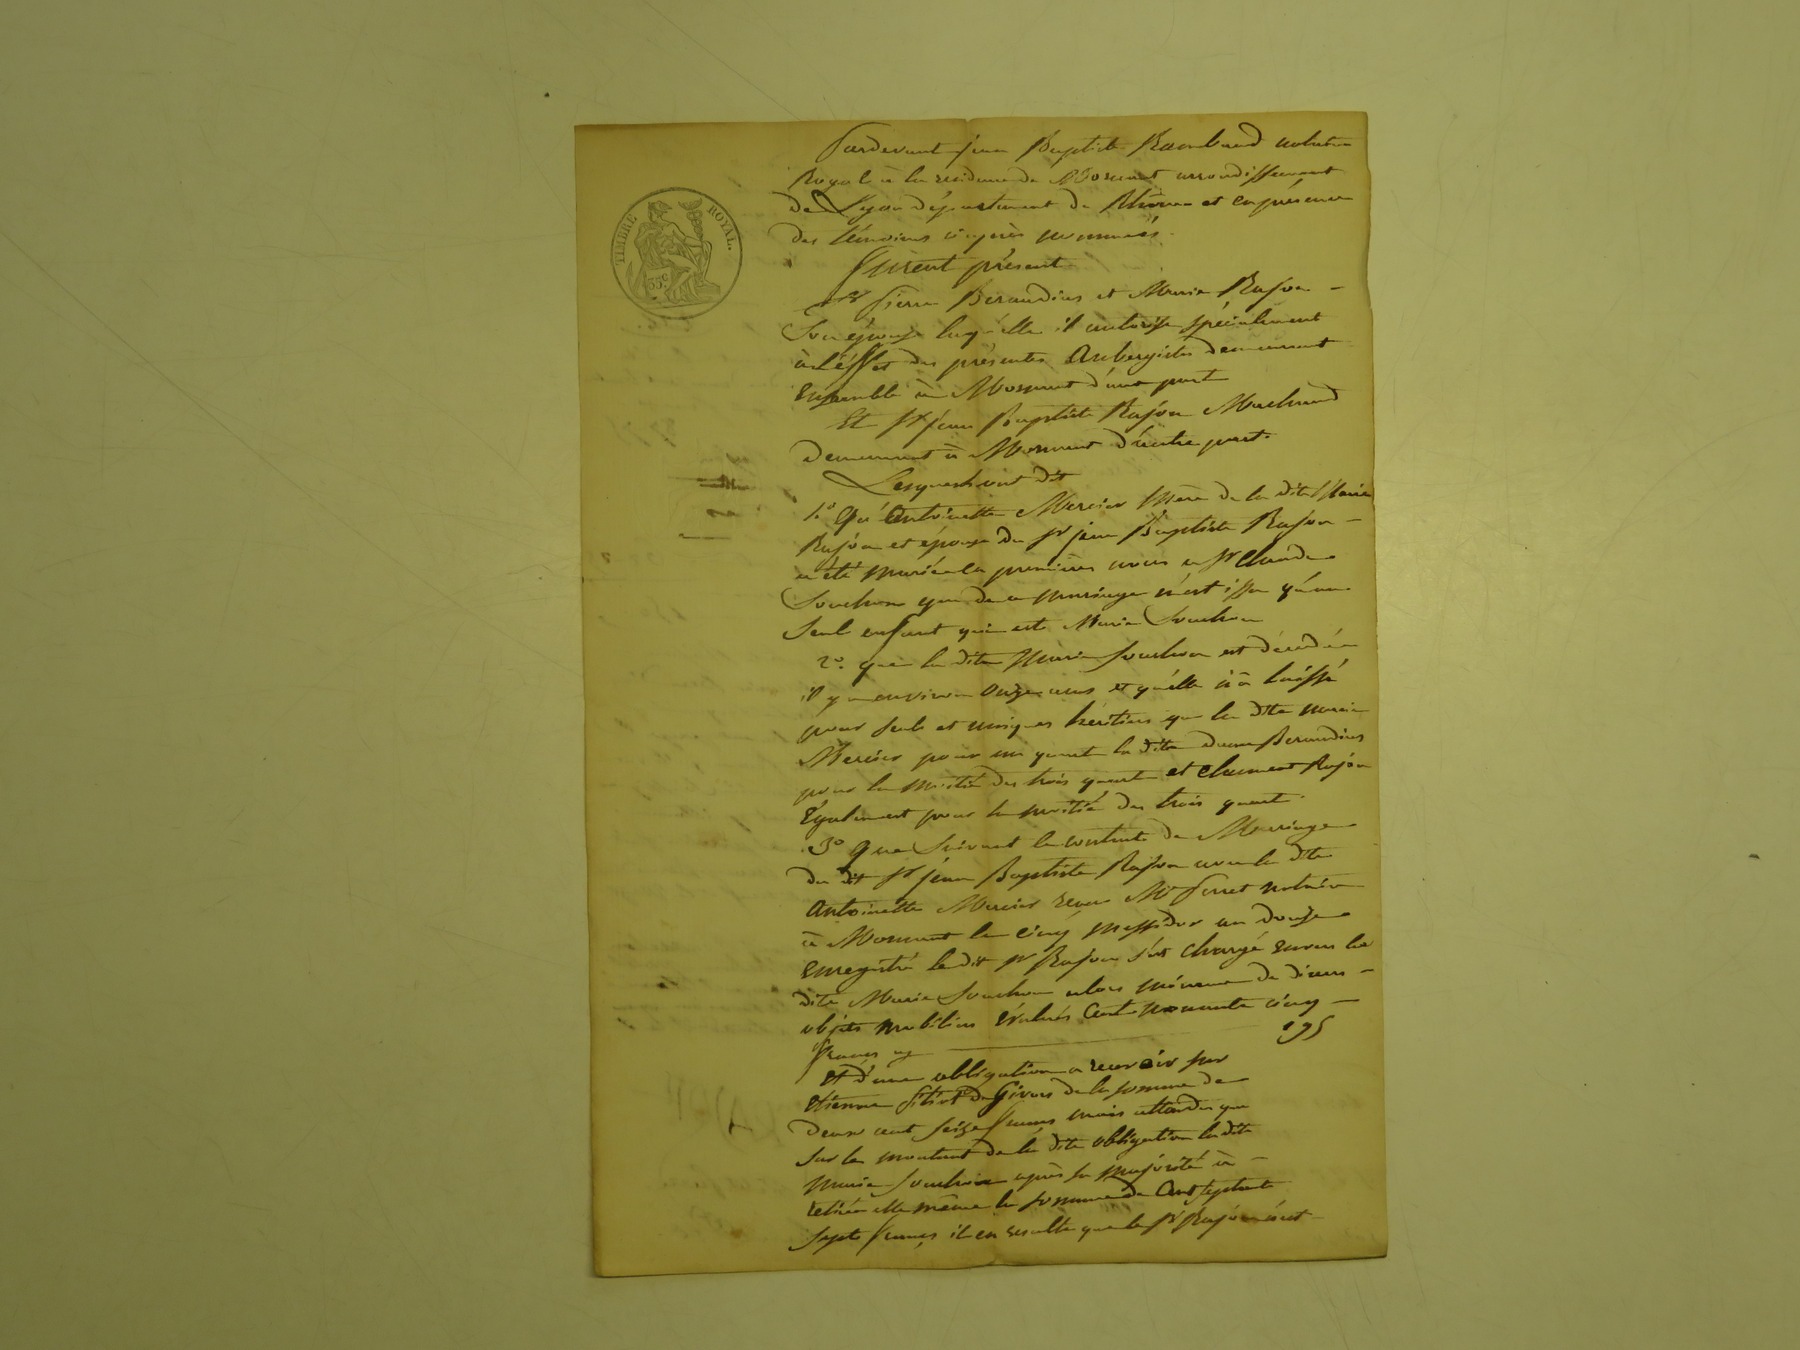 TIMBRE ROYAL.
35c
Pardevant jean Baptiste Rambaud notaire
Royal à la residence de Mornant arrondissement
de Lyon département du Rhône et en présence
des témoins ciaprès nommés.
furent présent
Sr Pierre Beraudias et Marie Rajon
Son épouse laquelle il autorise spécialement
à l'éffet des présentes Aubergistes demeurant
Ensemble à Mornant d'une part
Et Sr jean Baptiste Rajon Machand
demeurant à Mornant d'autre part.
Lesquels ont dit
1.o Qu'Antoinette Mercier Mère de la dite Marie
Rajon et épouse du Sr jean Baptiste Rajon
a été mariée en premières noces a Sr Claude
Souchon que de ce mariage n'est issu qu'un
Seul enfant qui est Marie Souchon
2.o que la dite Marie Souchon est décédée
il y a environ Onze ans et qu'elle n'a laissé
pour seuls et uniques héritiers que la dite
Mercier pour un quart la dite Beraudias
pour la moitié des trois quart et Clement Rajon
Également pour la moitié des trois quart.
3o que Suivant le contrat de Mariage
du dit Sr jean Baptiste Rajon avec la dite
Antoinette Mercier reçu Me Perret notaire
à Mornant le cinq messidor an douze
enregistré le dit Sr Rajon s'est chargé envers la
dite Marie Souchon alors mineure de divers
objets mobiliers évalués Cent nonante cinq
francs 195
Et d'une obligation a recevoir sur
Etienne de Givors de la somme de
deux cent seize francs mais attendu que
Sur le montant de la dite obligation la dite
Marie Souchon après sa majorité à
retiré elle même la somme de Cent septante
Sept francs il en resulte que le Sr Rajon n'est